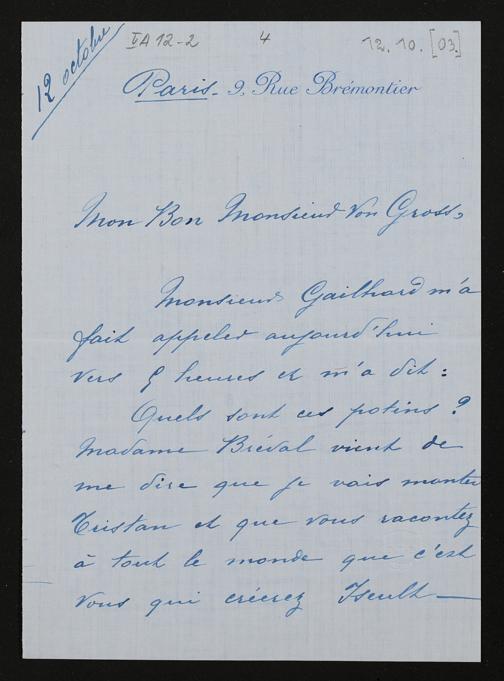 12 octobre
IA 12-2
4
12.10.[03.]
Paris. 9, Rue Brémontier
Mon Bon Monsieur Von Gross,
Monsieur Gailhard m'a
fait appeler aujourd'hui
vers 5 heures et m'a dit :
Quels sont ces potins ?
Madame Bréval vient de
me dire que je vais monter
Tristan et que vous racontez
à tout le monde que c'est
vous qui créerez Iseult —